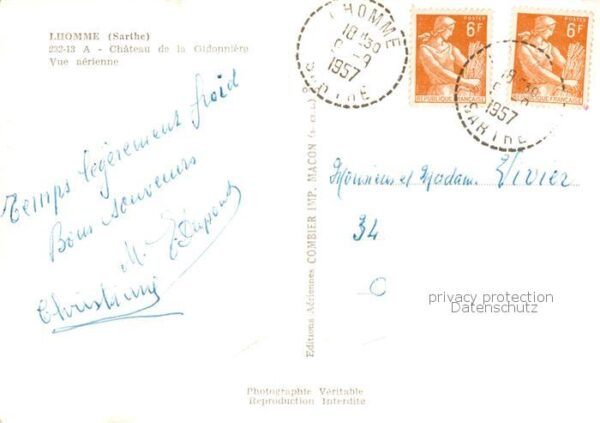 LHOMME (Sarthe)
232-13 A - Château de la Gidonnière
Vue aérienne
Temps légèrement froid
Bons souvenirs
M. Dupont
Christiane
Editions Aériennes COMBIER IMP. MACON
LHOMME
18 30
1957
SARTHE
6F
POSTES
REPUBLIQUE FRANÇAISE
6F
POSTES
REPUBLIQUE FRANÇAISE
18 30
1957
SARTHE
Monsieur et Madame Vivier
34
privacy protection
Datenschutz
Photographie Véritable
Reproduction Interdite